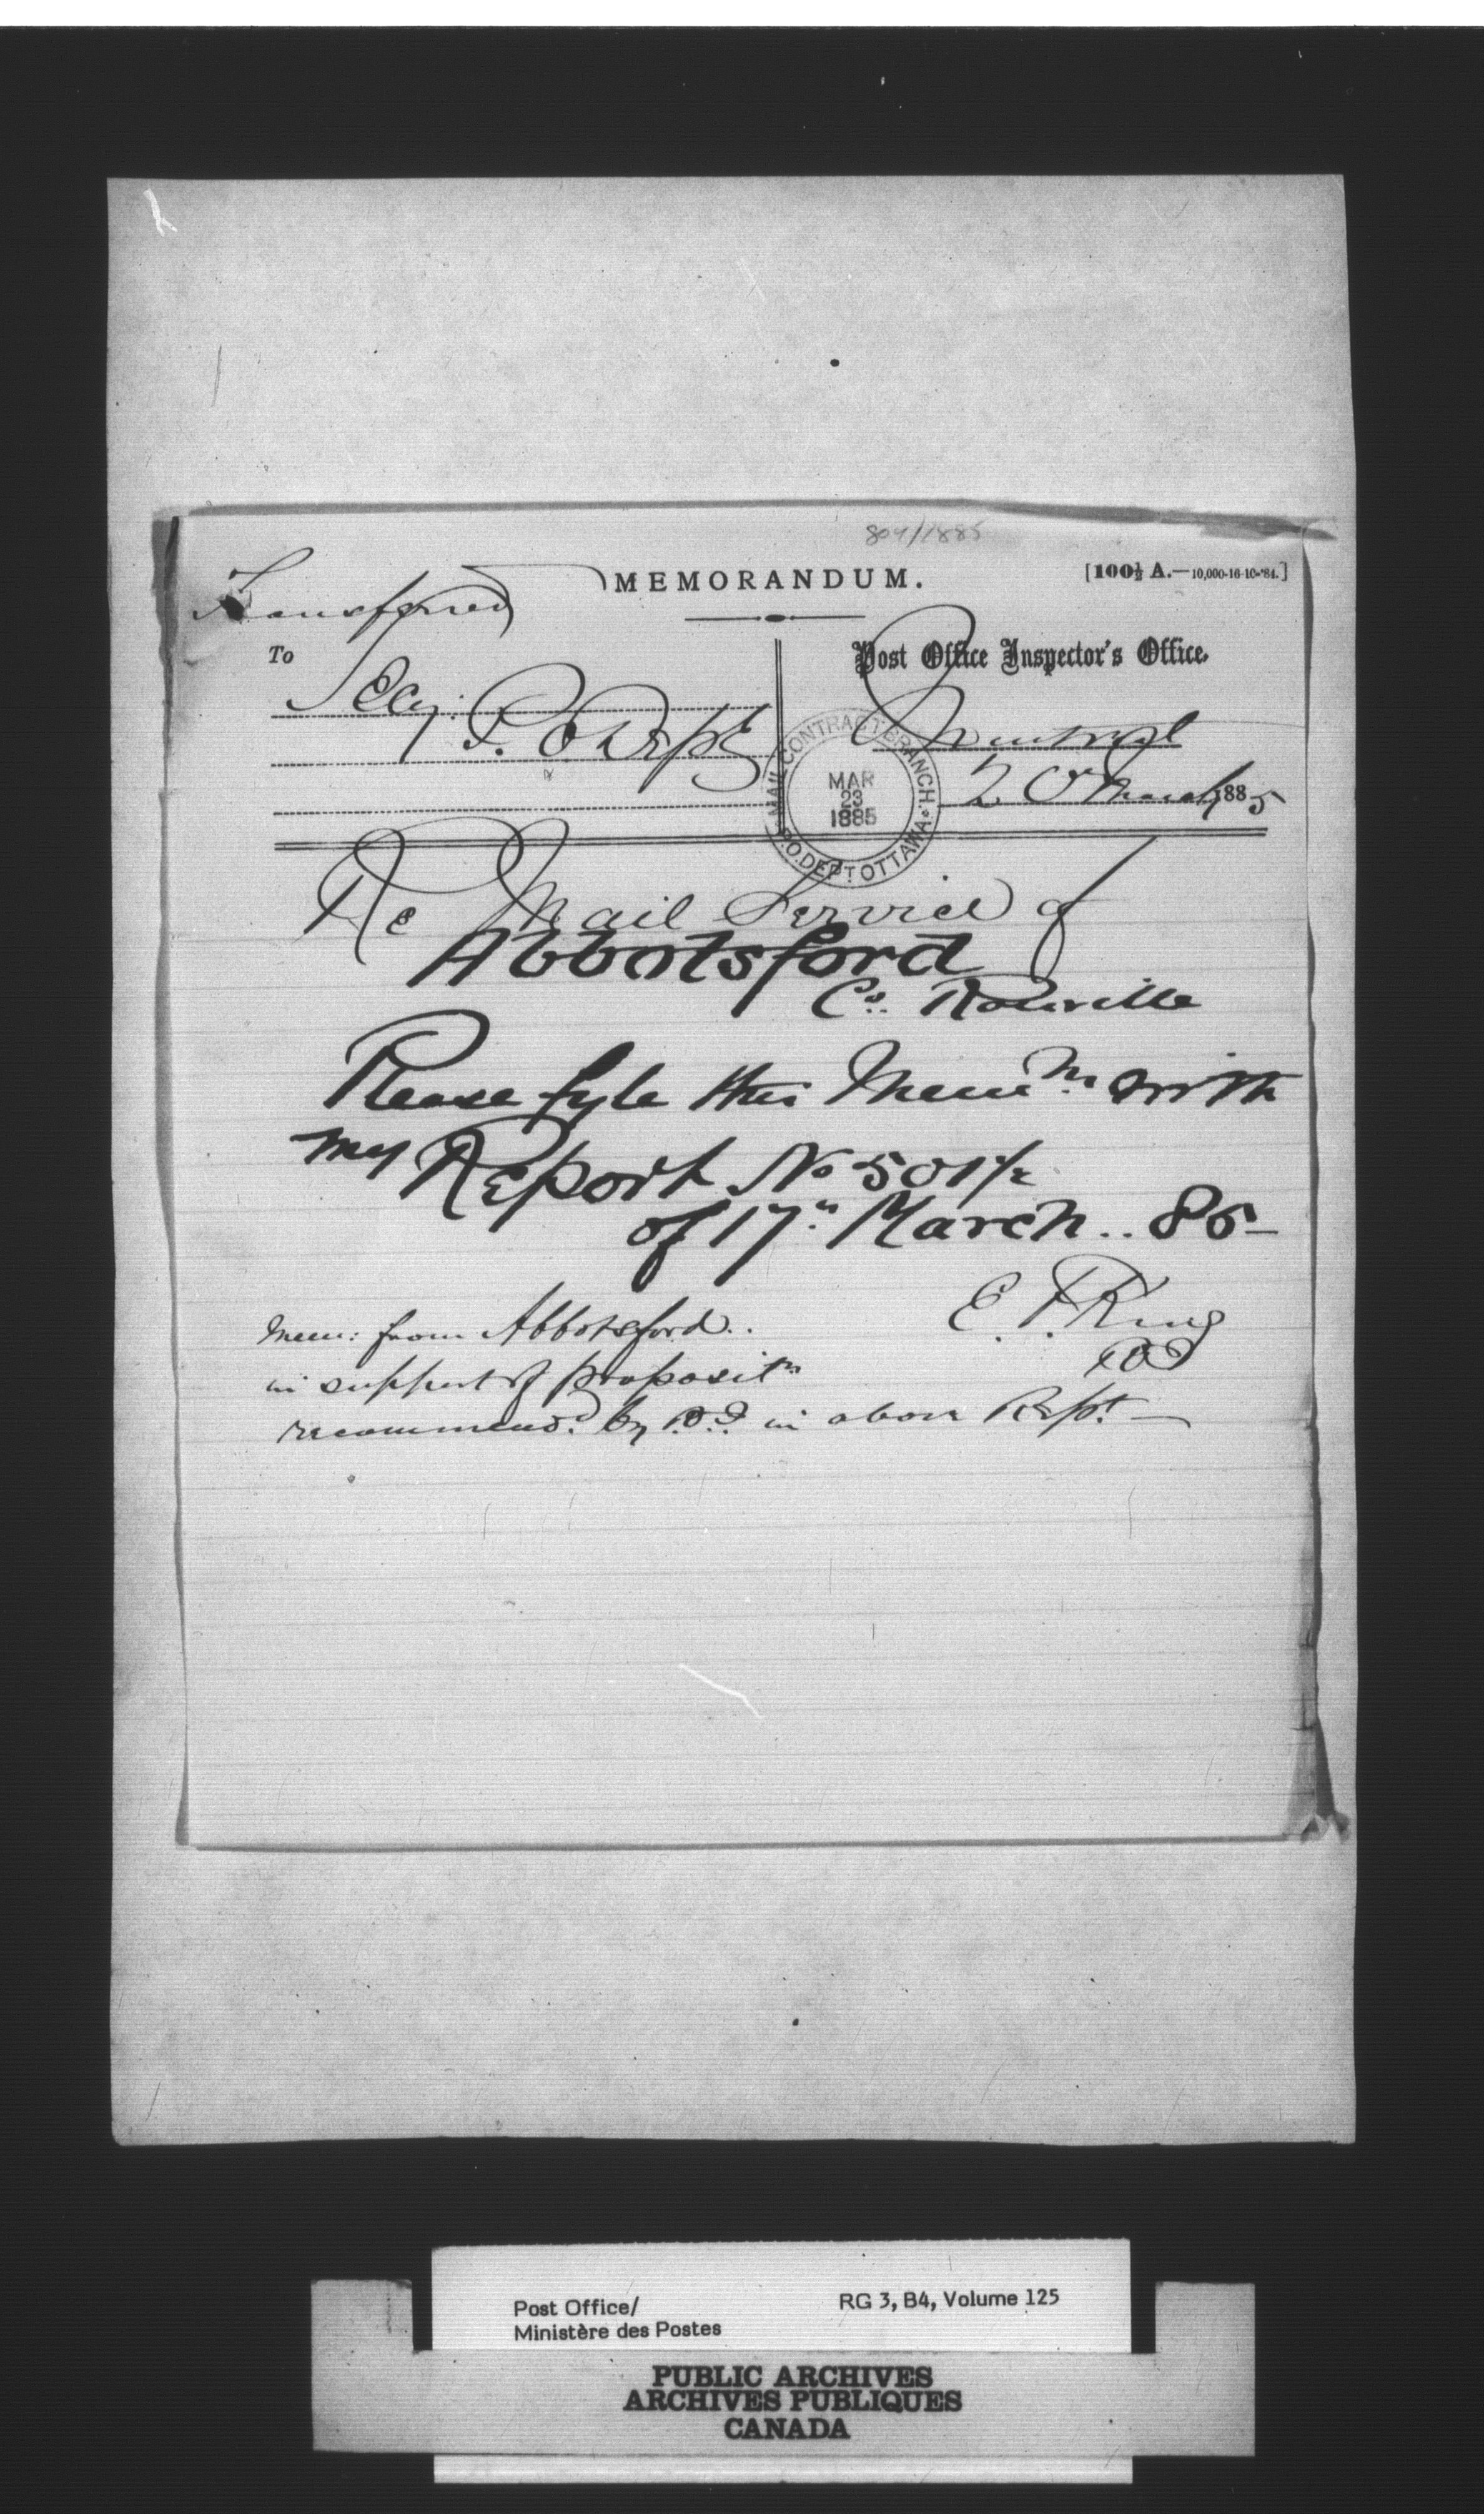 809/1885
Transferred
MEMORANDUM.
[100½ A.—10,000-16-10-'84.]
To
Secy: P. O. Dept
Post Office Inspector's Office,
Montreal
20 March 1885
MAIL CONTRACT BRANCH.
MAR
23
1885
P.O. DEPT. OTTAWA
Re Mail Service of
Abbotsford
Co. Rouville
Please fyle this Memm. with
my Report No 501½
of 17th March .. 85—
E. F. King
POI
Mem: from Abbotsford..
in support of propositn
recommend.d by P.O.I. in above Rept—
Post Office/
Ministère des Postes
RG 3, B4, Volume 125
PUBLIC ARCHIVES
ARCHIVES PUBLIQUES
CANADA